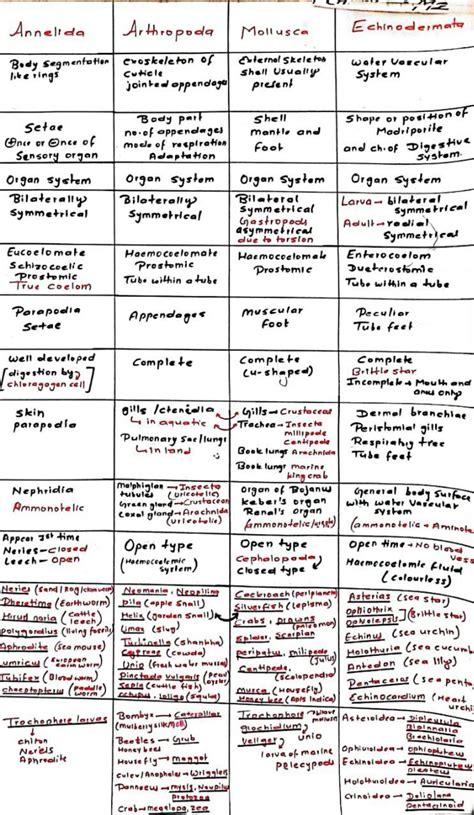 Annelida
Arthropoda
Mollusca
Echinodermata
Body Segmentation
like rings
exoskeleton of
cuticle
jointed appendage
External Skeleton
Shell Usually
present
Water Vascular
System
Setae
⊕nce or ⊖nce of
Sensory organ
Body part
no. of appendages
mode of respiration
Adaptation
Shell
mantle and
Foot
Shape or position of
Madriporite
and ch. of Digestive
System
Organ System
Organ System
Organ System
Organ System
Bilaterally
Symmetrical
Bilaterally
Symmetrical
Bilateral
Symmetrical
Gastropods
asymmetrical
due to torsion
Larva → bilateral
Symmetrical
Adult → radial
Symmetrical
Eucoelomate
Schizocoelic
Prostomic
True coelom
Haemocoelomate
Prostomic
Tube within a tube
Haemocoelomate
Prostomic
Enterocoelom
Dueterostomic
Tube within a tube
Parapodia
Setae
Appendages
Muscular
foot
Peculiar
Tube feet
well developed
[digestion by
chloragogen cell]
Complete
Complete
(U-shaped)
Complete
Brittle star
Incomplete → Mouth and
anus only
Skin
parapodia
gills /ctenidia
↳ in aquatic
Pulmonary Sac/lungs
↳ in land
Gills → Crustacea
Trachea → Insecta
millipede
Centipede
Book lungs Arachnida
Book lungs marine
king crab
Dermal branchiae
Peristomial gills
Respiratry tree
Tube feet
Nephridia
Ammonotelic
Malphigian → Insecta
tubules (uricotelic)
Green gland → Crustacean
Coxal gland → Arachnida
(uricotelic)
organ of Bojanus
keber's organ
Renal's organ
General body Surface
with water Vascular
System
(ammonotelic + Aminote
Appear 1st time
Neries → Closed
Leech → Open
Open type
(Haemocoelomic
System)
Open type
Cephalopoda
closed type
Open time → No blood
Vess
Haemocoelomic fluid
(colourless)
Neries
Pheretima (Earthworm)
Hirudinaria (cattle
leech)
Polygordius (living fossils)
Aphrodite (Sea mouse)
Lumricus (European
Tubifex (Blood worm)
Chaetopterus (Paddle
worm)
Neomania, Neopilina
pila (apple snail)
Helix (garden Snail)
Limax (slug)
Turbinella (Shankha)
Cyprea (cowda)
Unio (fresh water mussel)
Pinctada vulgaris (pearl
Sepia (cuttle fish)
octupus, Loligo (squid)
Cockroach (periplaneta)
Silverfish (lepisma)
Crabs, prawns
Spider, Scorpian
peripatus, milipede
(Julus)
Centipede,
(scolopendra)
musca (Housefly)
Honey bee (Apis indica)
Asterias (sea star)
Ophiothrix
(Brittle star)
Echinus (sea urchin)
Holothuria (sea cucumb
Antedon (sea lily)
Pentaceros (sea penta
Echinocardium (Heart
urchin
Trochophore larvae
↳ chiton
Neries
Aphrodite
Bombyx → Caterpillar
(mulberry silk moth)
Beetles → Grub
Honey bees
House fly → maggot
Culex/Anopheles → Wrigglers
Pannaeus → mysis, Nauplius
Protozoa
Crab → megalopa, zoea
Trochophore
glochidium
veliger
unio
larva of marine
pelecypods
Asteroidea → Dipleurula
Bipinnaria
Brachiolaria
Ophiuroidea → Ophiopluteus
Echinoidea → Echinopluteus
Pleuteus
Holothuroidea → Auricularia
Crinoidea → Doliolaria
Pentacrinoid